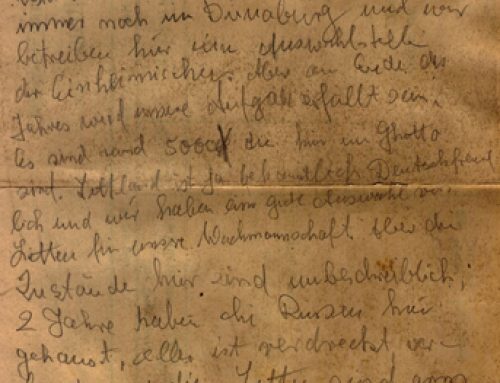 immer noch in Dünaburg und wir
betreiben hier eine Auswahlstelle
der Einheimischen. Aber am Ende des
Jahres wird unsere Aufgabe erfüllt sein.
Es sind rund 5000 die hier im Ghetto
sind. Lettland ist ja bekanntlich Deutschfreund
lich und wir haben eine gute Auswahl von
Letten für unsere Wachmannschaft. Aber die
Zustände hier sind unbeschreiblich,
2 Jahre haben die Russen hier
gehaust, alles ist verdreckt ver-
die Letten sind